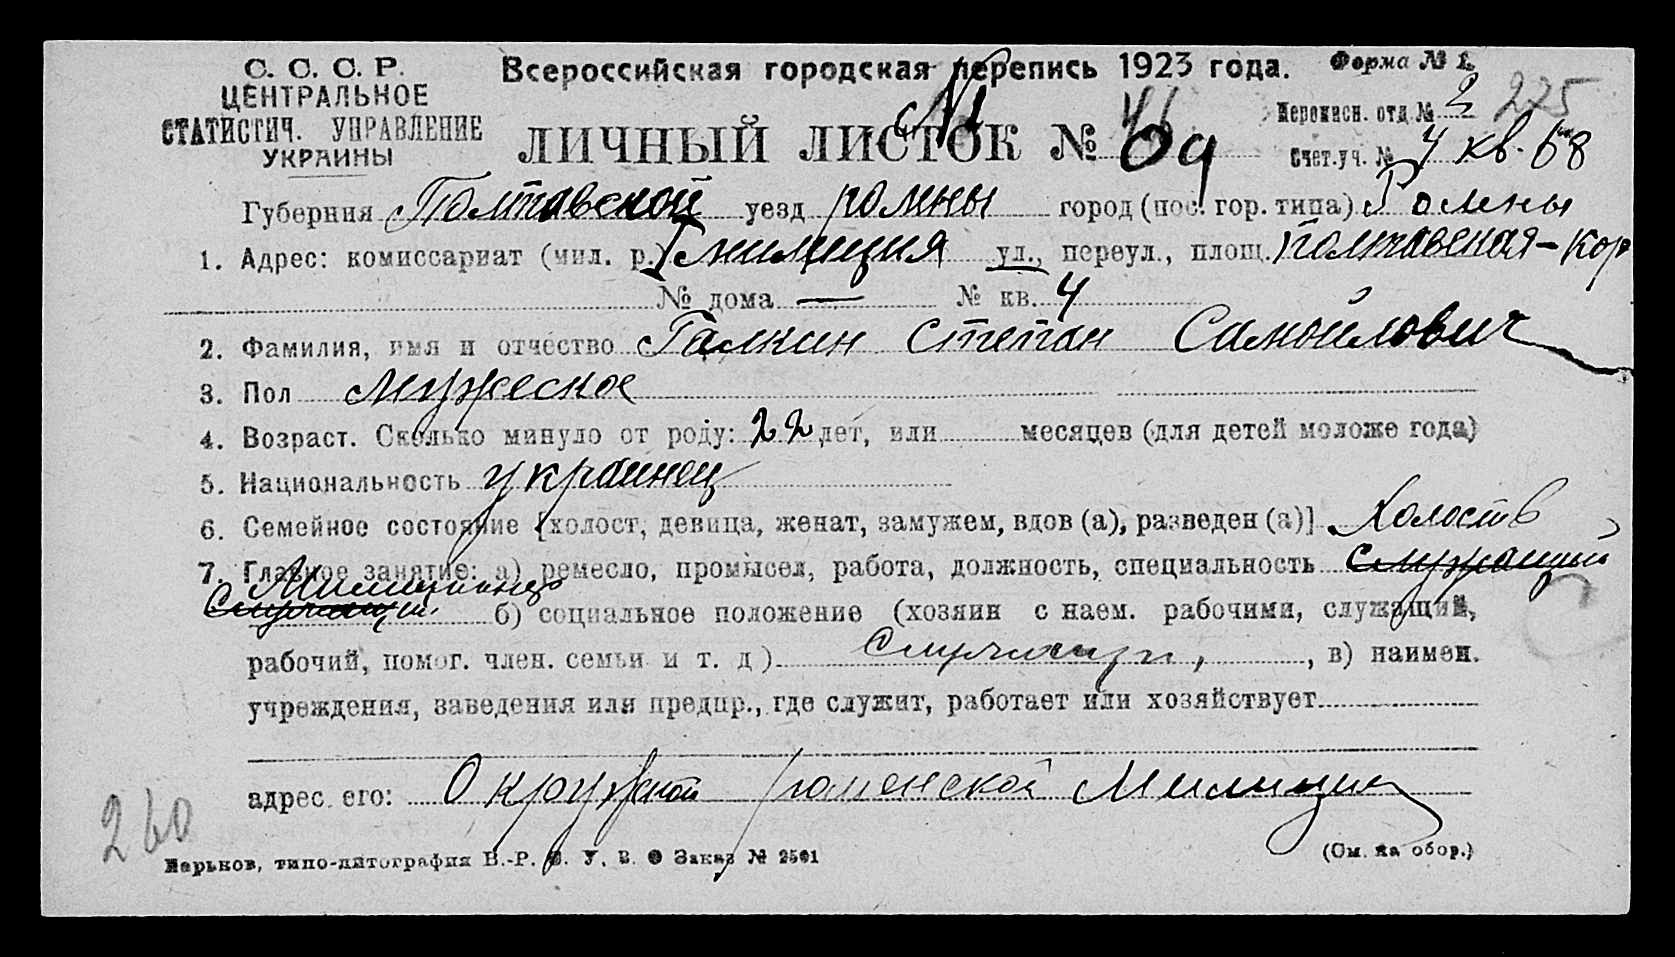 С. С. С. Р.
ЦЕНТРАЛЬНОЕ
СТАТИСТИЧ. УПРАВЛЕНИЕ
УКРАИНЫ
Всероссийская городская перепись 1923 года.
Форма № 1.
ЛИЧНЫЙ ЛИСТОК №
Переписн. отд. № 2 225
Счет. уч. № 4 кв. 68
Губерния Полтавской уезд ромны город (пос. гор. типа) Ромны
1. Адрес: комиссариат (мил. р.) милиция ул., переул., площ. Полтавская-Кор
№ дома — № кв. 4
2. Фамилия, имя и отчество Галкин Степан Самойлович
3. Пол мужеское
4. Возраст. Сколько минуло от роду: 22 лет, или месяцев (для детей моложе года)
5. Национальность украинец
6. Семейное состояние [холост, девица, женат, замужем, вдов (а), разведен (а)] Холост
7. Главное занятие: а) ремесло, промысел, работа, должность, специальность служащий
Милиционер
б) социальное положение (хозяин с наем. рабочими, служащий,
рабочий, помог. член. семьи и т. д.) Служащи, , в) наимен.
учреждения, заведения или предпр., где служит, работает или хозяйствует
адрес его: Окружной роменской Милиции
260
Харьков, типо-литография В.-Р. Ф. У. В. Заказ № 2501
(См. на обор.)